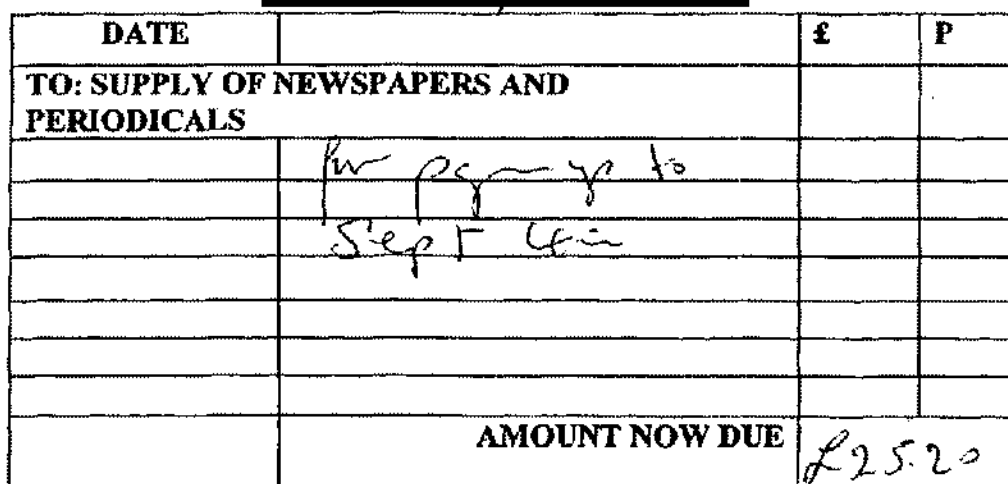 DATE £ P
TO: SUPPLY OF NEWSPAPERS AND
PERIODICALS
for up to
Sept 4th
AMOUNT NOW DUE £25.20